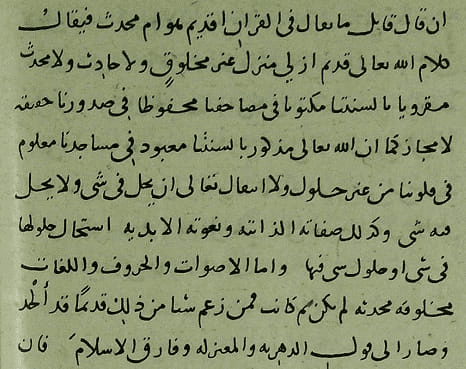 ان قال قايل ما يقال في القران اقديم هو ام محدث فيقال
كلام الله تعالى قديم ازلي منزل غير مخلوق ولا حادث ولا محدث
مقرويا بالسنتنا مكتوبا في مصاحفنا محفوظا في صدورنا حقيقة
لا مجاز كما ان الله تعالى مذكور بالسنتنا معبود في مساجدنا معلوم
في قلوبنا من غير حلول ولا انتقال تعالى ان يحل في شى ولا يحل
فيه شى وكذلك صفاته الذاتية ونعوته الابدية استحال حلولها
في شى او حلول شى فيها واما الاصوات والحروف واللغات
مخلوقه محدثه لم يكن ثم كانت فمن زعم شيا من ذلك قديمًا قد ألحد
وصار الى قول الدهريه والمعتزله وفارق الاسلام فان